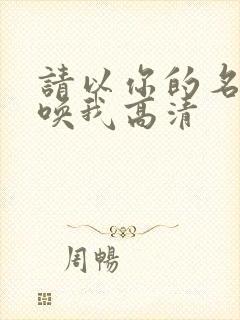 請以你的名
喚我高清
周暢